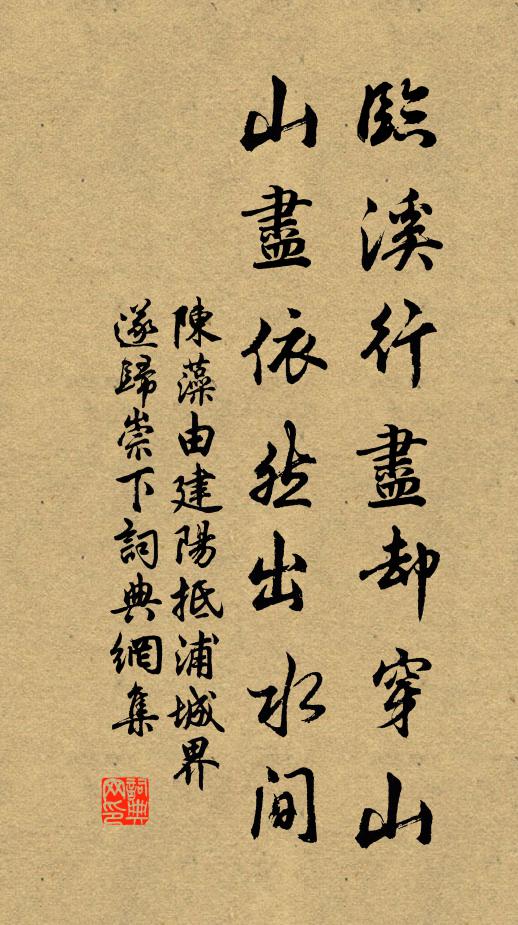 臨溪行盡却穿山
山盡依然出水間
陳藻由建陽抵浦城界
遂歸崇下詞典網集
詞典
网印